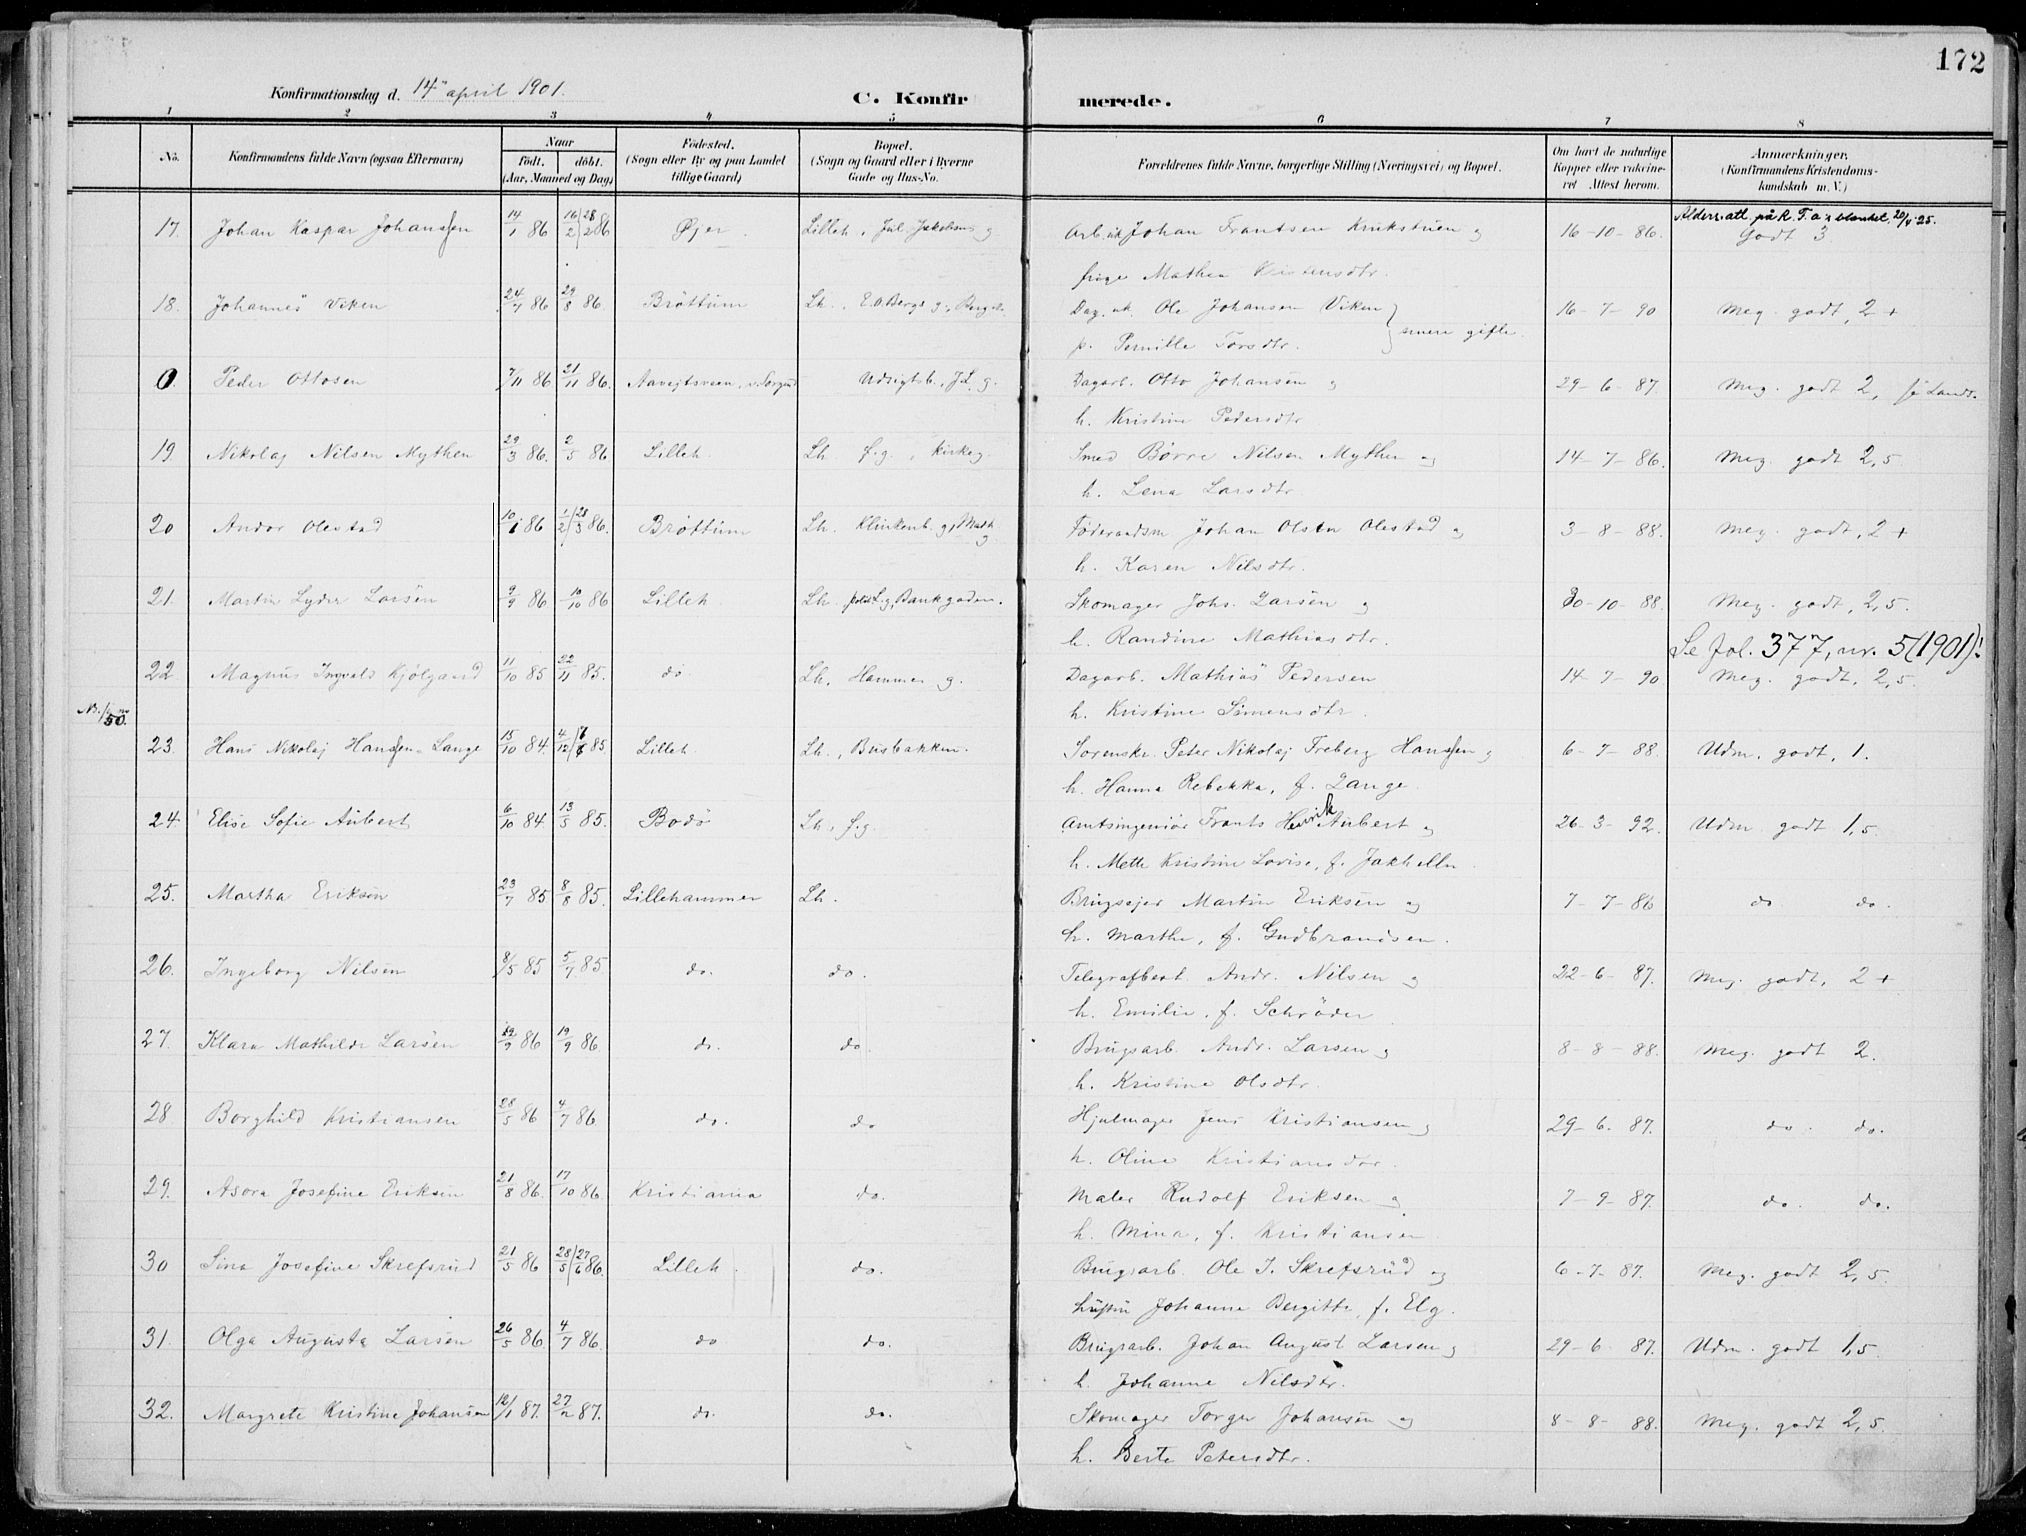 172
Konfirmationsdag d. 14de april 1901.
C. Konfirmerede.
1 2 3 4 5 6 7 8
No. Konfirmandens fulde Navn (ogsaa Efternavn) Naar født. døbt. (Aar, Maaned og Dag) Fødested. (Sogn eller By og paa Landet tillige Gaard) Bopæl. (Sogn og Gaard eller i Byerne Gade og Hus-No. Forældrenes fulde Navne, borgerlige Stilling (Næringsvei) og Bopæl. Om havt de naturlige Kopper eller vaccineret Attest herom. Anmærkninger. (Konfirmandens Kristendomskundskab m. V.)
Aldersatt. på R.T.a's blanket 20/4-25.
17. Johan Kaspar Johanssen 14/1 86 16/2 | 28/2 86 Øjer. Lilleh., Jul. Jakobsens g. Arb.uk Johan Frantsen Krukstuen og 16-10-86. Godt 3
frige Mathea Kristensdtr.
18. Johannes Viken 24/7 86 29/8 86. Brøttum Lh., E.O.Bergs g., Ole Johansen Viken 16-7-90 Meg. godt, 2+
p. Pernille Torsdtr. } senere gifte.
0. Peder Ottosen 7/11 86 21/11 86. Udsigtsb., J.L. g. Dagarb. Otto Johansen og 29-6-87. Meg. godt 2,
h. Kristine Pedersdtr.
19. Nikolaj Nilsen Mythen 29/3 86. 2/5 86 Lilleh. Lh. f.g., Kirkeg. Smed Børre Nilsen Mythen og 14-7-86. Meg. godt 2,5
h. Lena Larsdtr.
20 Andor Olestad 10/1 86 1/2 | 28/3 86. Brøttum Lh. Klinkenb. g. Føderaadsm. Johan Olsen Olestad og 3-8-88. Meg. godt, 2+
h. Karen Nilsdtr.
21. Martin Lyder Larsen 9/9 86 10/10 86 Lilleh Lh. Bankgaden. Skomager Johs. Larsen og 30-10-88. Meg. godt, 2,5.
h. Randine Mathiasdtr.
Se fol. 377, nr. 5 (1901)!
22. Magnus Ingvald Kjølgaard 11/10 85 22/11 85. do. Lh. Hammer g. Dagarb. Mathias Pedersen 14-7-90 Meg. godt, 2,5.
h. Kristine Simensdtr.
50.
23. Hans Nikolaj Hanssen-Lange 15/10 84. 85. Lilleh. Lh., Busbakken. Sorenskr. Peter Nikolaj Freberg Hanssen og 6-7-88. Udm. godt, 1.
h. Hanna Rebekka, f. Lange.
24. Elise Sofie Aubert 6/10 84. 13/5 85. Bodø Lh. f.g. Amtsingeniør Frants Henrik Aubert og 26-3-92. Udm. godt 1,5.
h. Mette Kristine Lovise, f. Jakhelln.
25. Martha Eriksen 23/7 85 8/8 85. Lillehammer Lh. Brugsejer Martin Eriksen og 7-7-86 do do.
h. Marthe, f. Gudbrandsen.
26. Ingeborg Nilsen 8/5 85 5/7 85. do. do. Telegrafbest. Andr. Nilsen og 22-6-87. Meg. godt, 2+
h. Emilie, f. Schrøder
27. Klara Mathilde Larsen 86 19/9 86 do. do. Brugsarb. Andr. Larsen og 8-8-88. Meg. godt 2.
h. Kristine Olsdtr.
28 Borghild Kristiansen 28/5 86 4/7 86 do. do Hjulmager Jens Kristiansen og 29-6-87. do. do.
h. Oline Kristiansdtr.
29. Asora Josefine Eriksen 21/8 86. 17/10 86. Kristiania do. Maler Rudolf Eriksen og 7-9-87. do. do.
h. Mina, f. Kristiansen
30 Sina Josefine Skrefsrud 21/5 86 28/5 | 27/6 86. Lilleh. do. Brugsarb. Ole J. Skrefsrud og 6-7-87. Meg. godt 2,5.
hustru Johanne Bergitte, f. Elg.
31. Olga Augusta Larsen 26/5 86. 4/7 86. do do. Brugsarb. Johan August Larsen og 29-6-87. Udm. godt 1,5.
h. Johanne Nilsdtr.
32. Margrete Kristine Johansen 12/1 87. 27/2 87. do. do. Skomager Torger Johansen og 8-8-88. Meg. godt 2,5.
h. Berte Petersdtr.